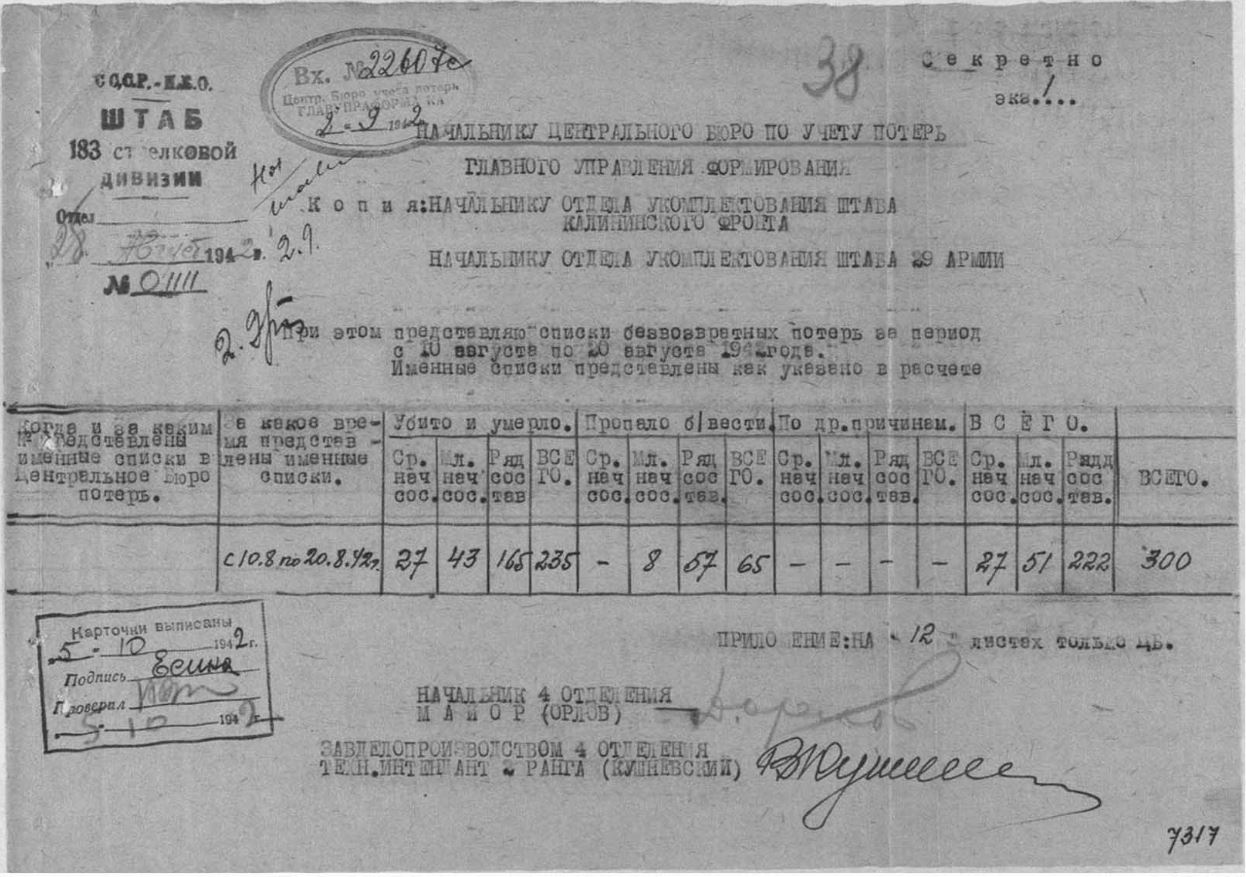 38
Секретно
экз. 1...
СССР.-Н.К.О.
ШТАБ
183 стрелковой
дивизии
Отдел
28 Август 1942 г.
№ 01111
Вх. № 22607с
Центр. Бюро учета потерь
ГЛАВУПРАФОРМ КА
2 - 9 1942
2.9.
НАЧАЛЬНИКУ ЦЕНТРАЛЬНОГО БЮРО ПО УЧЕТУ ПОТЕРЬ
ГЛАВНОГО УПРАВЛЕНИЯ ФОРМИРОВАНИЯ
К о п и я: НАЧАЛЬНИКУ ОТДЕЛА УКОМПЛЕКТОВАНИЯ ШТАБА
КАЛИНИНСКОГО ФРОНТА
НАЧАЛЬНИКУ ОТДЕЛА УКОМПЛЕКТОВАНИЯ ШТАБА 29 АРМИИ
При этом представляю списки безвозвратных потерь за период
с 10 августа по 20 августа 1942 года.
Именные списки представлены как указано в расчете
Когда и за каким
№ представлены
именные списки в
Центральное Бюро
потерь.
За какое вре-
мя представ-
лены именные
списки.
Убито и умерло. Пропало б/вести. По др.причинам. В С Е Г О.
Ср. Мл. Ряд ВСЕ Ср. Мл. Ряд ВСЕ Ср. Мл. Ряд ВСЕ Ср. Мл. Рядд
нач нач сос ГО. нач нач сос ГО. нач нач сос ГО. нач нач сос ВСЕГО.
сос. сос. тав сос. сос. тав. сос. сос. тав. сос. сос. тав.
с 10.8 по 20.8.42г. 27 43 165 235 - 8 57 65 - - - - 27 51 222 300
Карточки выписаны
5 - 10 1942 г.
Подпись Есина
Проверил
5 - 10 1942 г.
ПРИЛО ЕНИЕ: НА - 12 - листах только ЦБ.
НАЧАЛЬНИК 4 ОТДЕЛЕНИЯ
М А Й О Р (ОРЛОВ)
ЗАВДЕЛОПРОИЗВОДСТВОМ 4 ОТДЕЛЕНИЯ
ТЕХН.ИНТЕНДАНТ 2 РАНГА (КУШНЕВСКИЙ)
7317